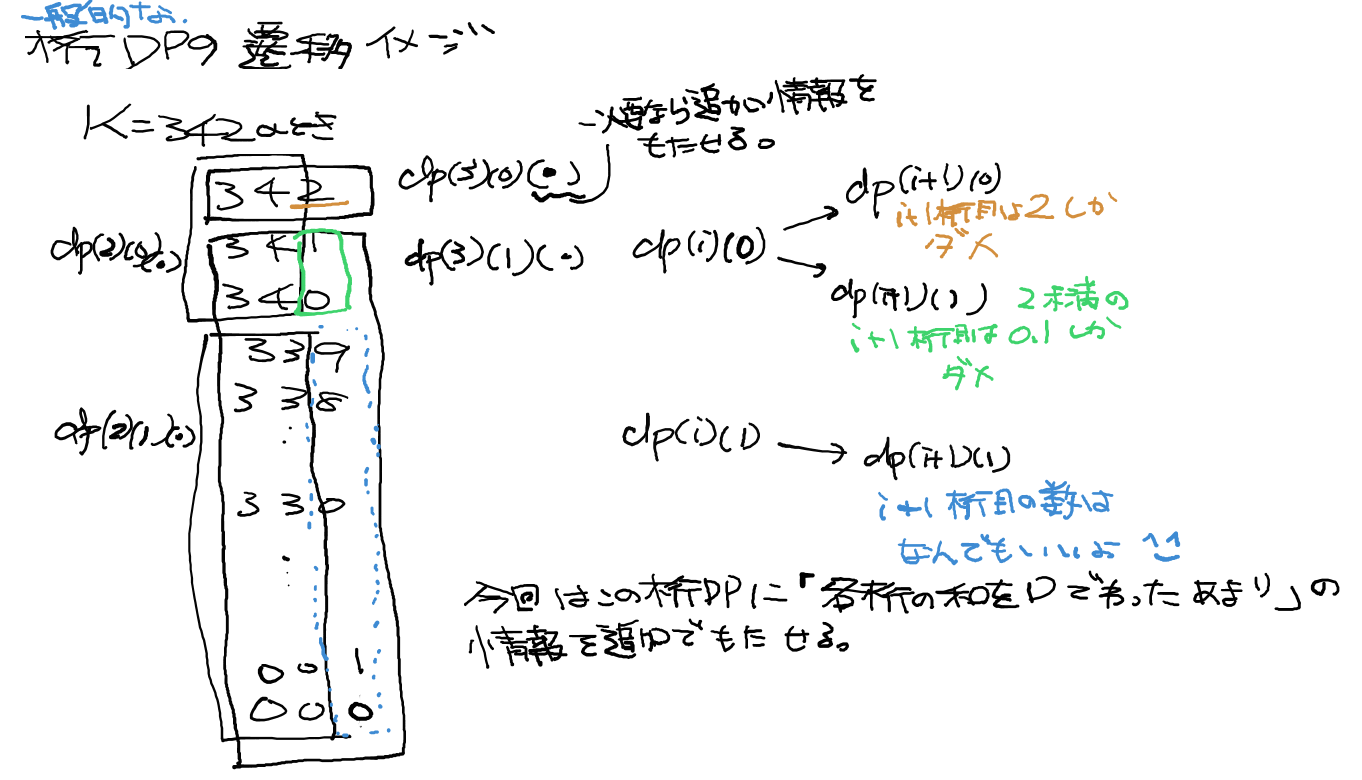 一般的な.
桁DPの遷移イメージ...
K=342のとき
必要なら追加い情報を
もたせる。
342
dp(3)(0)(・)
341
340
dp(2)(0)(・)
dp(3)(1)(・)
339
338
330
001
000
dp(2)(1)(・)
dp(i)(0)
dp(i+1)(0)
i+1桁目は2しか
ダメ
dp(i+1)(1)
2未満の
i+1桁目は0.1しか
ダメ
dp(i)(1)
dp(i+1)(1)
i+1桁目の数は
なんでもいいよ ^^
今回はこの桁DPに「各桁の和をDでわったあまり」の
情報を追加でもたせる。